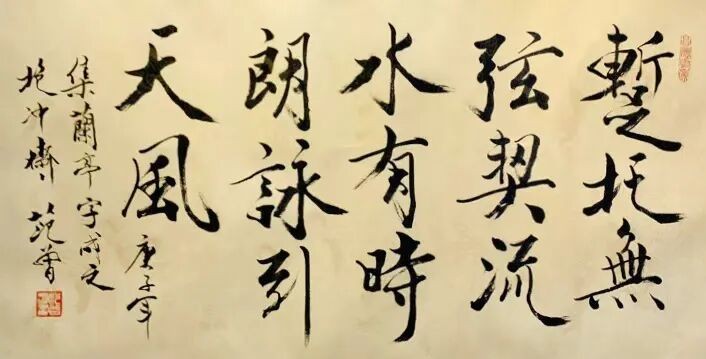 蹔托無
弦契流
水有時
朗詠引
天風
庚子年
集蘭亭字成之
抱冲齋范曾